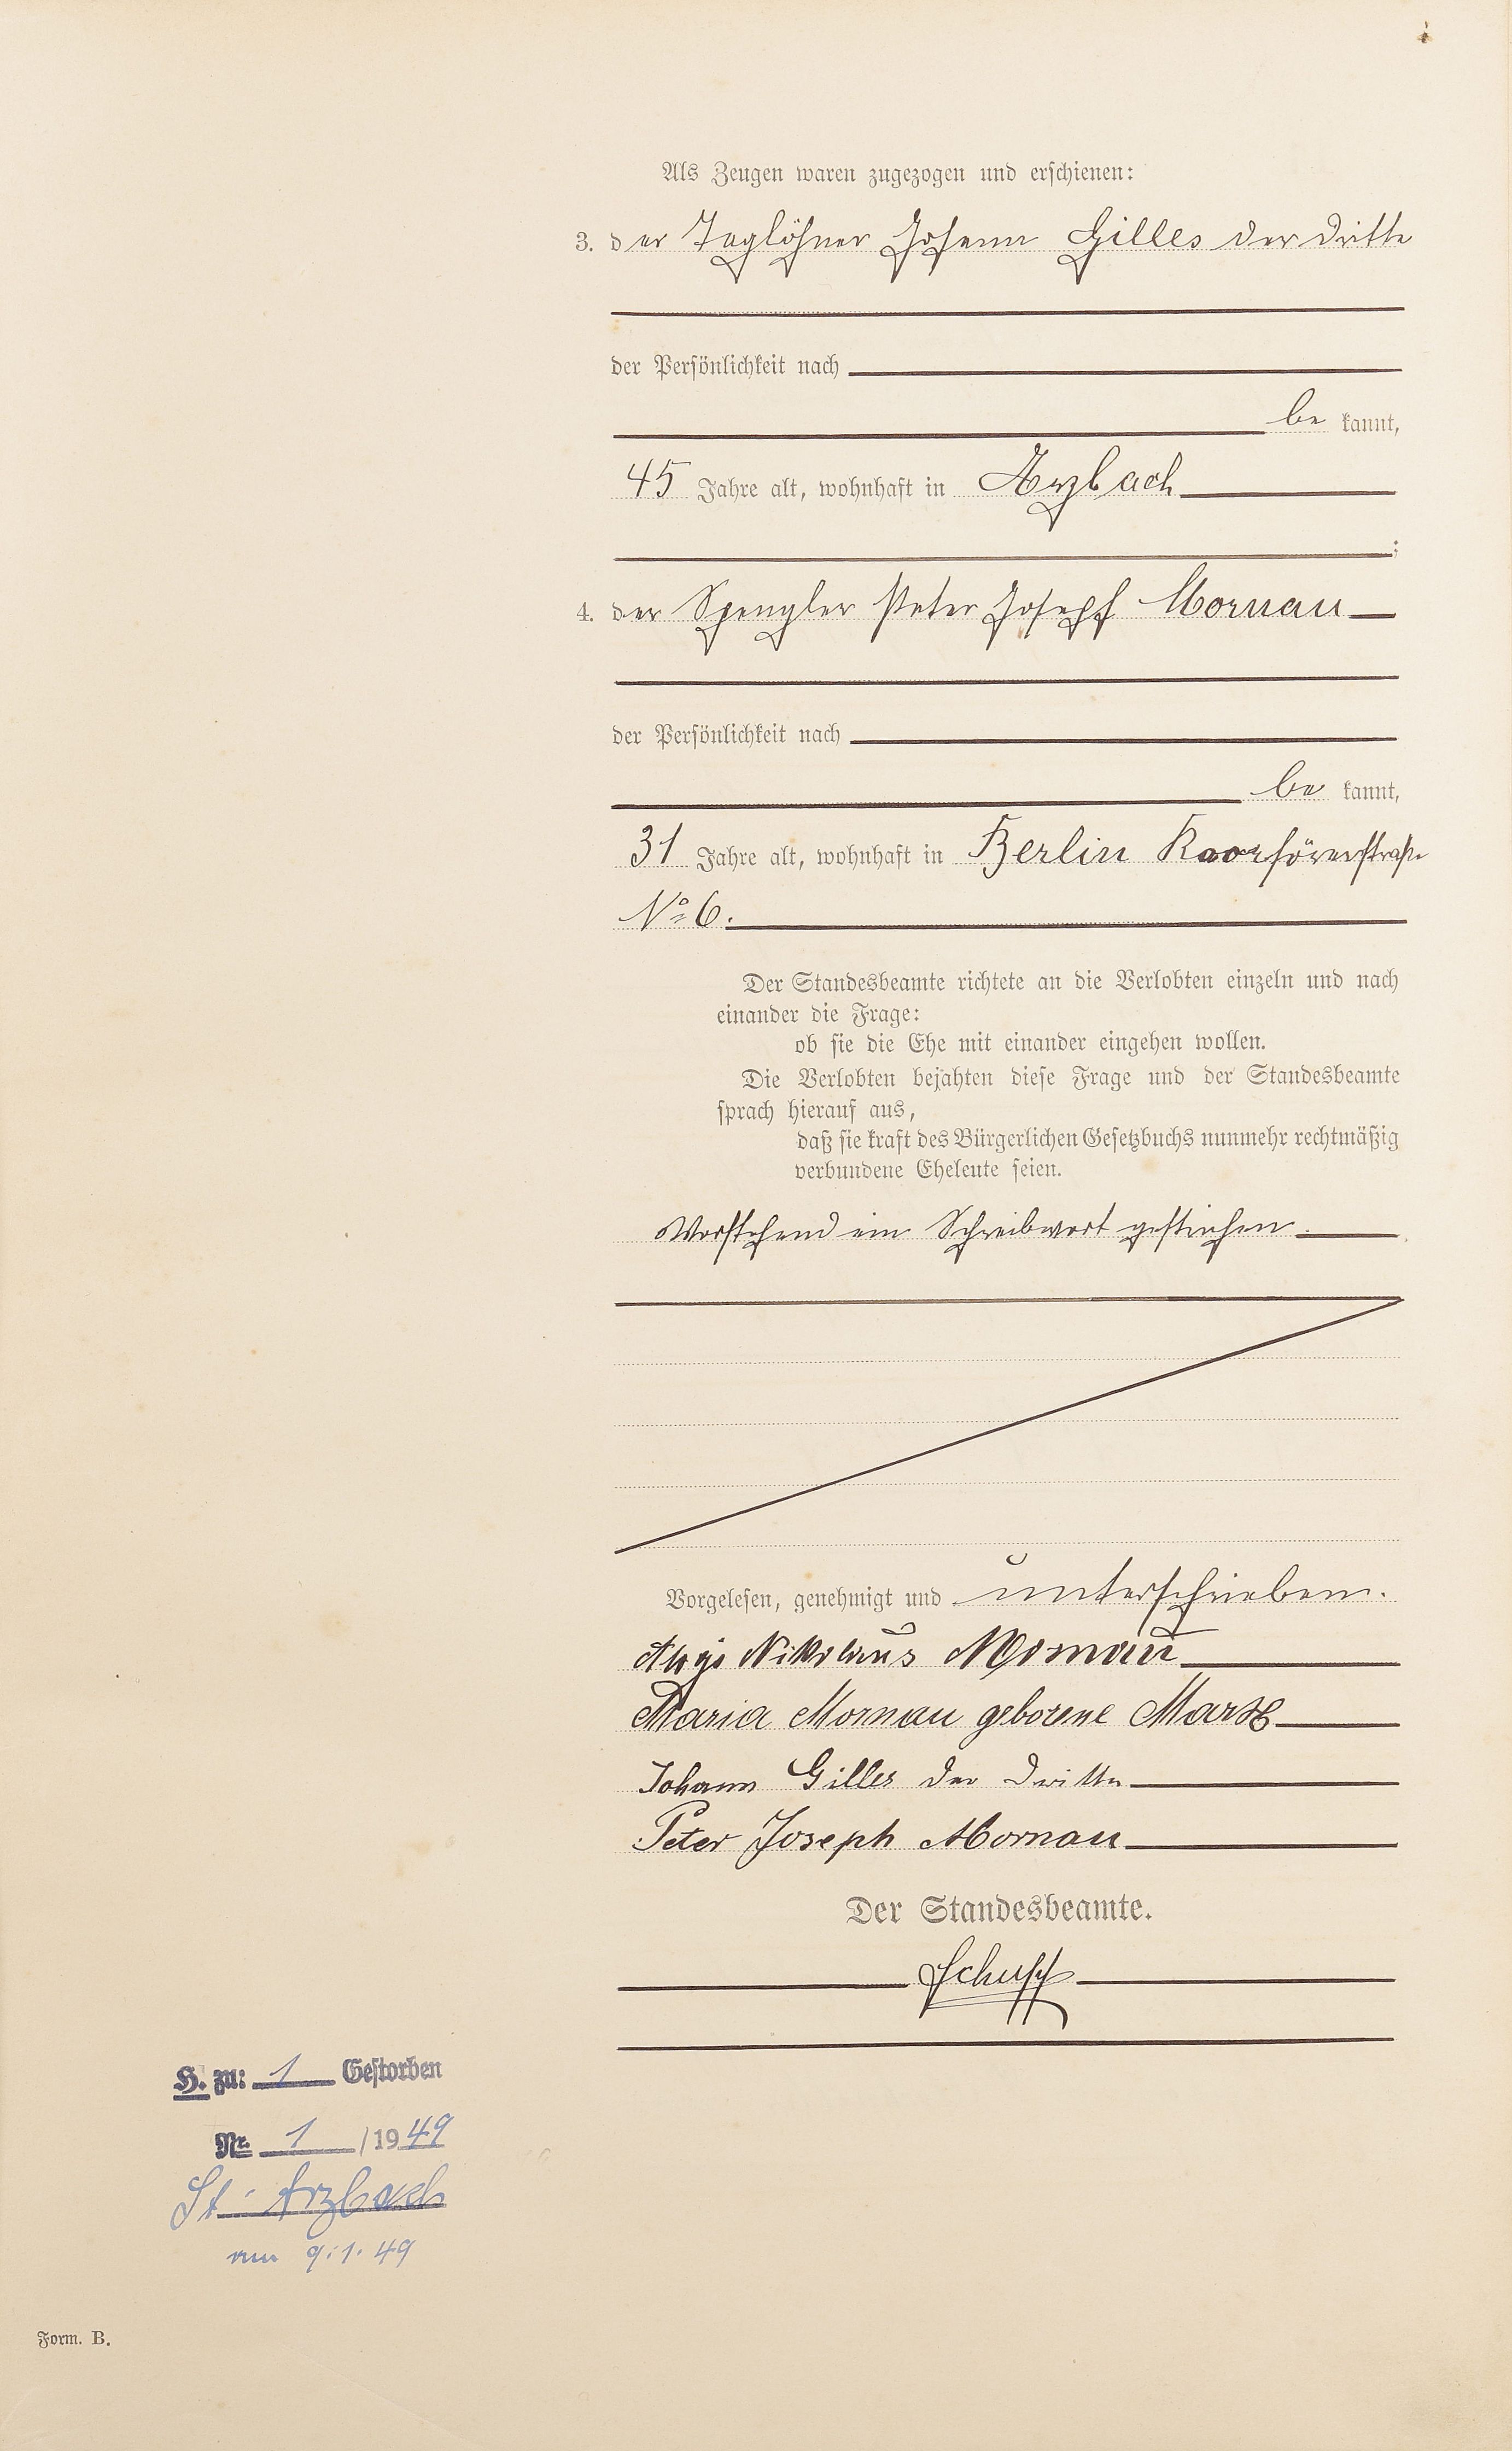 Als Zeugen waren zugezogen und erschienen:
3. der Taglöhner Johann Gilles der dritte
der Persönlichkeit nach
be kannt,
45 Jahre alt, wohnhaft in Arzbach
;
4. der Spengler Peter Joseph Mornau
der Persönlichkeit nach
be kannt,
31 Jahre alt, wohnhaft in Berlin
No 6.
Der Standesbeamte richtete an die Verlobten einzeln und nach
einander die Frage:
ob sie die Ehe mit einander eingehen wollen.
Die Verlobten bejahten diese Frage und der Standesbeamte
sprach hierauf aus,
daß sie kraft des Bürgerlichen Gesetzbuchs nunmehr rechtmäßig
verbundene Eheleute seien.
Vorstehend ein Schreibwort gestrichen.
Vorgelesen, genehmigt und unterschrieben.
Aloys Nikolaus Mornau
Maria Mornau geborene Marx
Johann Gilles der dritte
Peter Joseph Mornau
Der Standesbeamte.
Schupp
H. zu: 1 Gestorben
Nr. 1 /1949
St. Arzbach
am 9.1.49
Form. B.